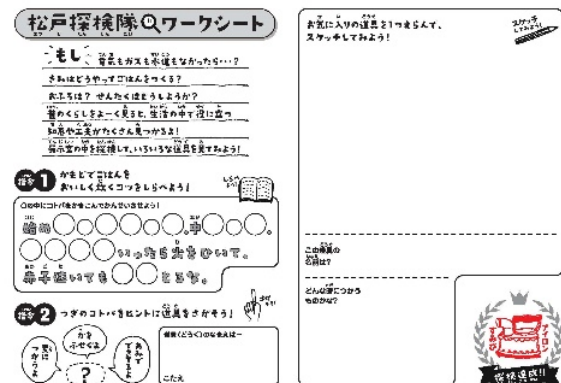 松戸探検隊ワークシート
もし
電気もガスも水道もなかったら・・・?
きみはどうやってごはんをつくる?
おふろは? せんたくはどうしようか?
昔のくらしをよーく見ると、生活の中で役に立つ
知恵や工夫がたくさん見つかるよ!
展示室の中を探検して、いろいろな道具を見てみよう!
指令1
かまどでごはんを
おいしく炊くコツをしらべよう!
しらべよう!
○の中にコトバをかきこんでかんせいさせよう!
始め○○○○○○。中○○○。
○○○○いったら火をひいて。
赤子泣いても○○とるな。
指令2
つぎのコトバをヒントに道具をさがそう!
さがそう!
夏につかうよ
かをふせぐよ
あみでできてるよ
?
道具(どうぐ)のなまえは―
こたえ
お気に入りの道具を1つえらんで、
スケッチしてみよう!
スケッチしてみよう!
この道具の
名前は?
どんな時につかう
ものかな?
すみび
アイロン
探検達成!!